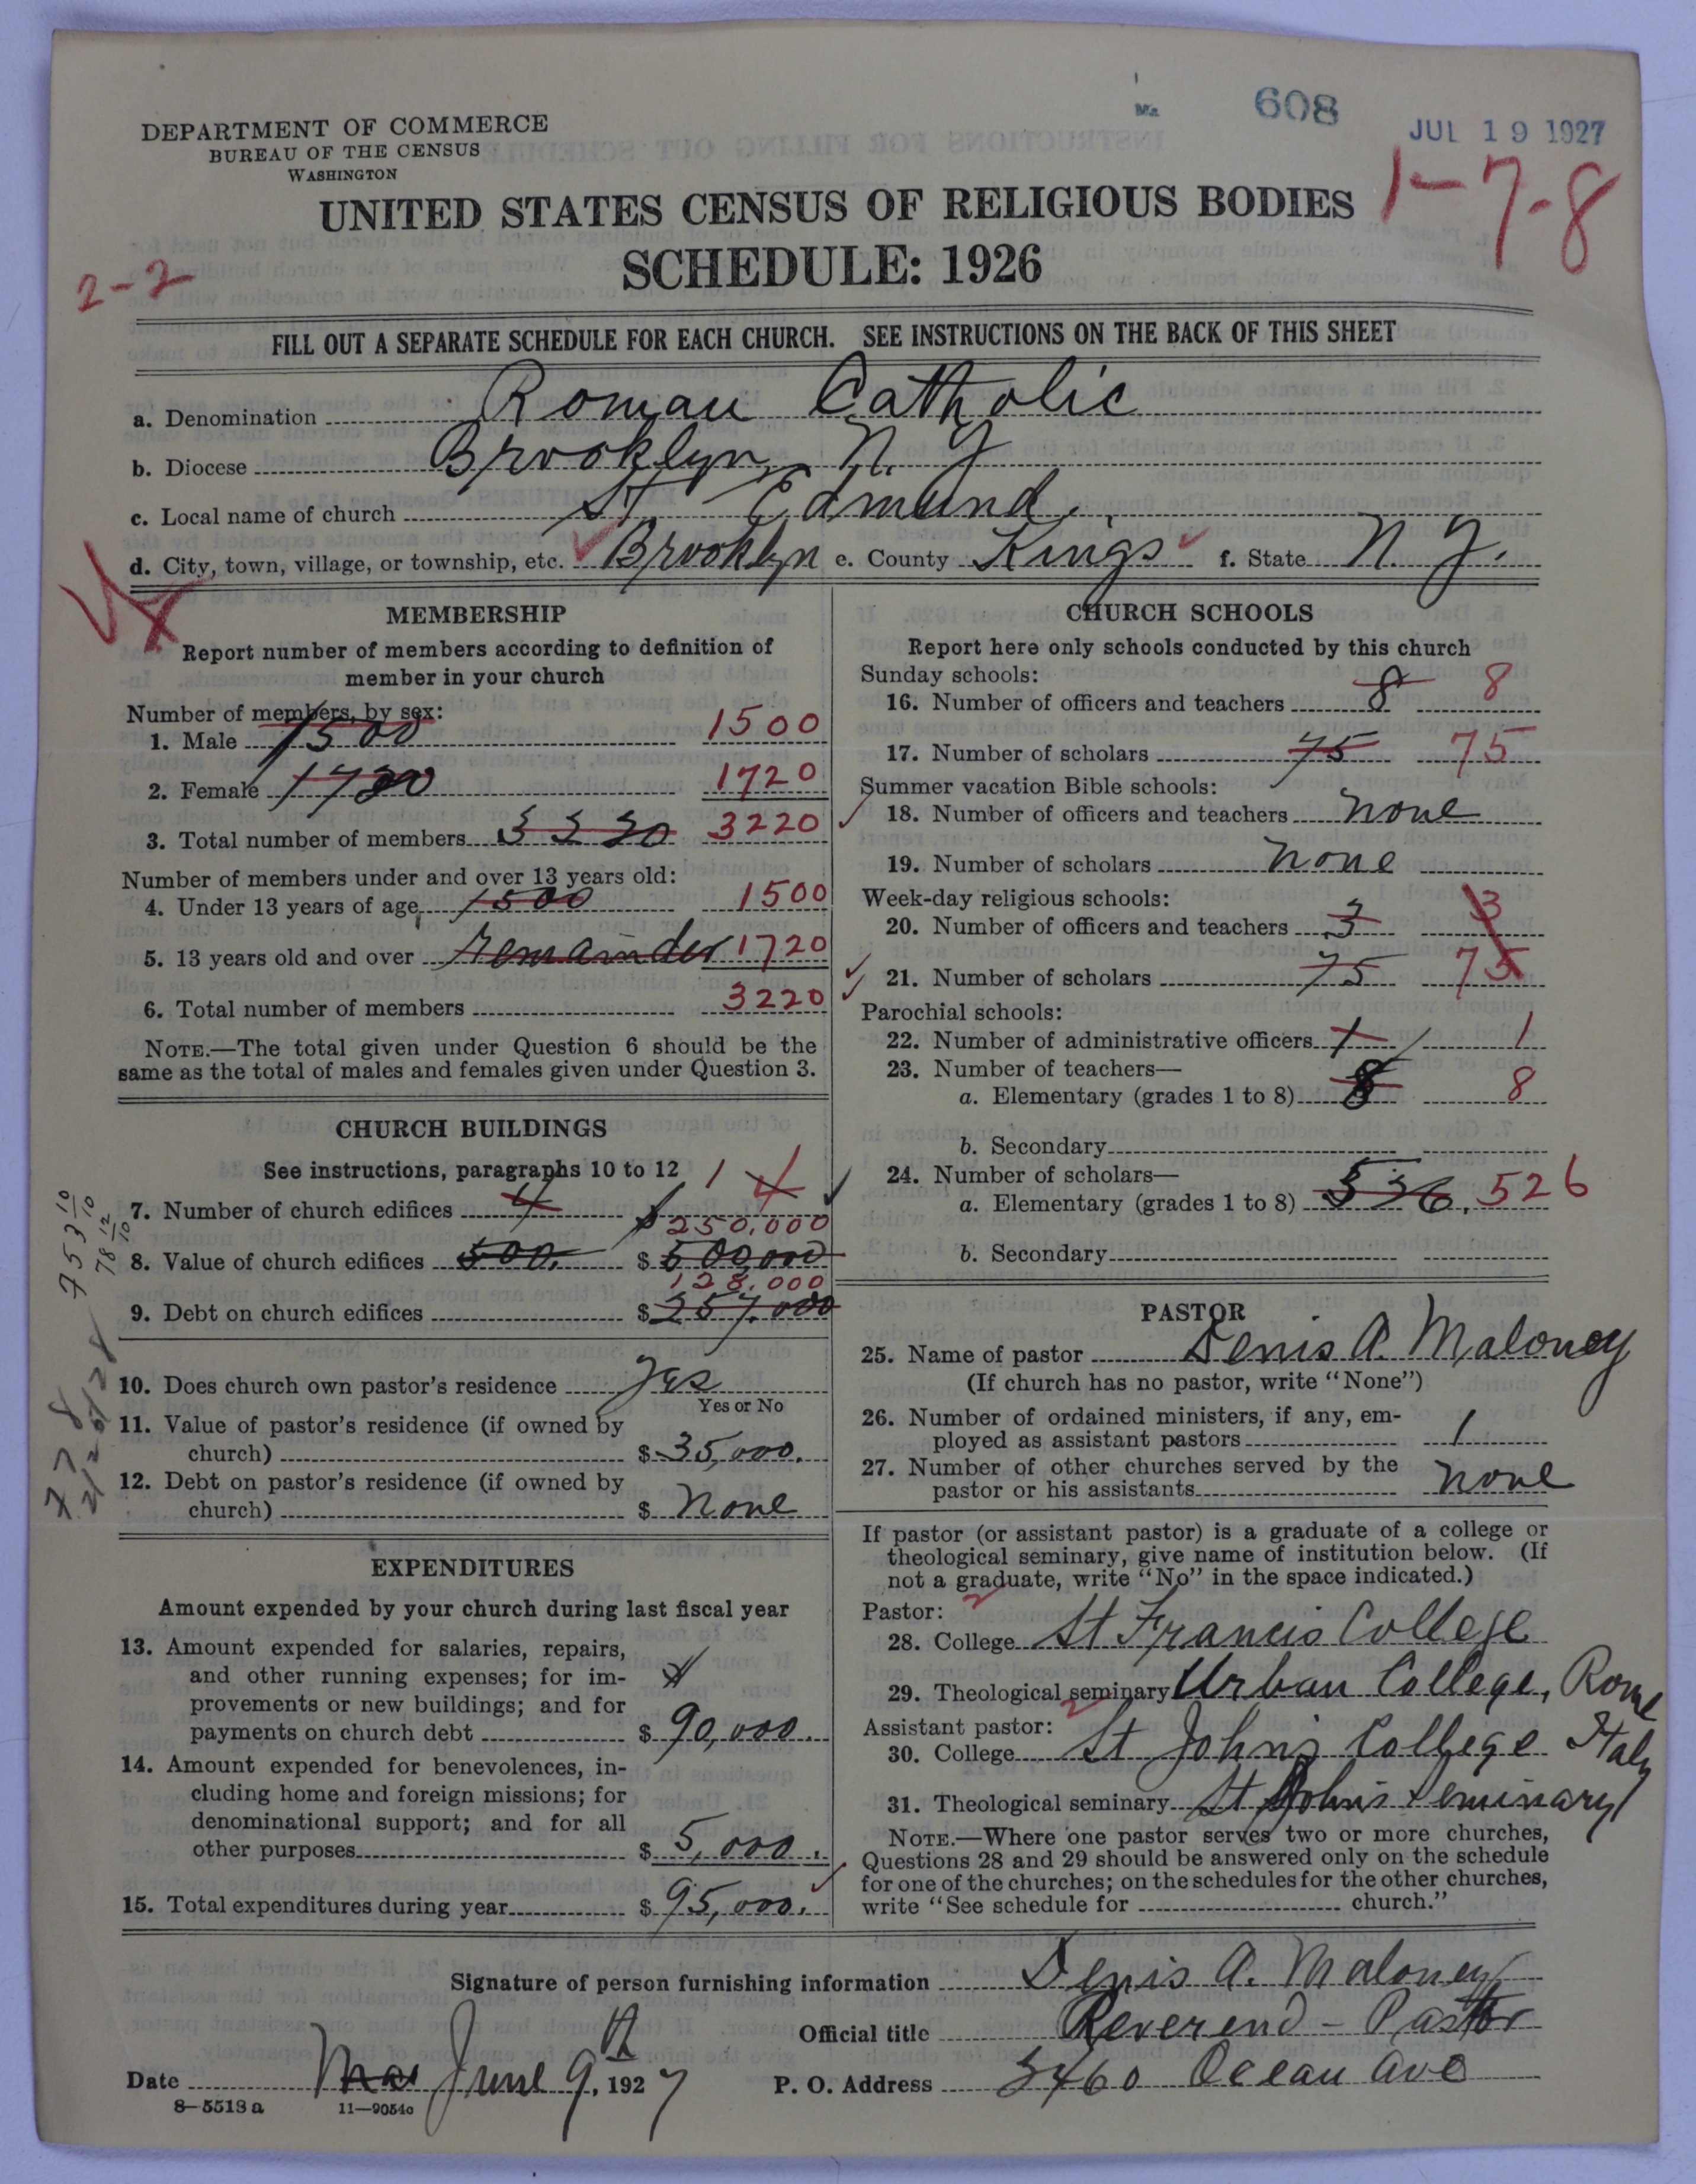 608
JUL 19 1927
DEPARTMENT OF COMMERCE
BUREAU OF THE CENSUS
WASHINGTON
1-7-8
UNITED STATES CENSUS OF RELIGIOUS BODIES
SCHEDULE: 1926
2-2
FILL OUT A SEPARATE SCHEDULE FOR EACH CHURCH. SEE INSTRUCTIONS ON THE BACK OF THIS SHEET
a. Denomination Roman Catholic
b. Diocese Brooklyn, N. Y.
c. Local name of church St Edmund.
d. City, town, village, or township, etc. Brooklyn e. County Kings f. State N. Y.
MEMBERSHIP
Report number of members according to definition of
member in your church
Number of members, by sex:
1. Male 1500 1500
2. Female 1720 1720
3. Total number of members 3220
Number of members under and over 13 years old:
4. Under 13 years of age 1500 1500
5. 13 years old and over remainder 1720
6. Total number of members 3220
NOTE.—The total given under Question 6 should be the
same as the total of males and females given under Question 3.
CHURCH BUILDINGS
See instructions, paragraphs 10 to 12
1 4
7. Number of church edifices 4
250,000
8. Value of church edifices 500. $ 500,000
128,000
9. Debt on church edifices $ 257,000
10. Does church own pastor's residence Yes
Yes or No
11. Value of pastor's residence (if owned by
church) $ 35,000.
12. Debt on pastor's residence (if owned by
church) $ None
EXPENDITURES
Amount expended by your church during last fiscal year
13. Amount expended for salaries, repairs,
and other running expenses; for im-
provements or new buildings; and for
payments on church debt $ 90,000.
14. Amount expended for benevolences, in-
cluding home and foreign missions; for
denominational support; and for all
other purposes $ 5,000.
15. Total expenditures during year $ 95,000.
CHURCH SCHOOLS
Report here only schools conducted by this church
Sunday schools:
16. Number of officers and teachers 8 8
17. Number of scholars 75 75
Summer vacation Bible schools:
18. Number of officers and teachers None
19. Number of scholars None
Week-day religious schools:
20. Number of officers and teachers 3 3
21. Number of scholars 75 75
Parochial schools:
22. Number of administrative officers 1 1
23. Number of teachers—
a. Elementary (grades 1 to 8) 8 8
b. Secondary
24. Number of scholars—
a. Elementary (grades 1 to 8) 526
b. Secondary
PASTOR
25. Name of pastor Denis A. Maloney
(If church has no pastor, write "None")
26. Number of ordained ministers, if any, em-
ployed as assistant pastors 1
27. Number of other churches served by the
pastor or his assistants None
If pastor (or assistant pastor) is a graduate of a college or
theological seminary, give name of institution below. (If
not a graduate, write "No" in the space indicated.)
Pastor:
28. College St Francis College
29. Theological seminary Urban College, Rome
Italy
Assistant pastor:
30. College St John's College
31. Theological seminary St John's Seminary
NOTE.—Where one pastor serves two or more churches,
Questions 28 and 29 should be answered only on the schedule
for one of the churches; on the schedules for the other churches,
write "See schedule for church."
Signature of person furnishing information Denis A. Maloney
Official title Reverend - Pastor
Date June 9th, 1927 P. O. Address 2460 Ocean Ave
8-5513a 11-9054c